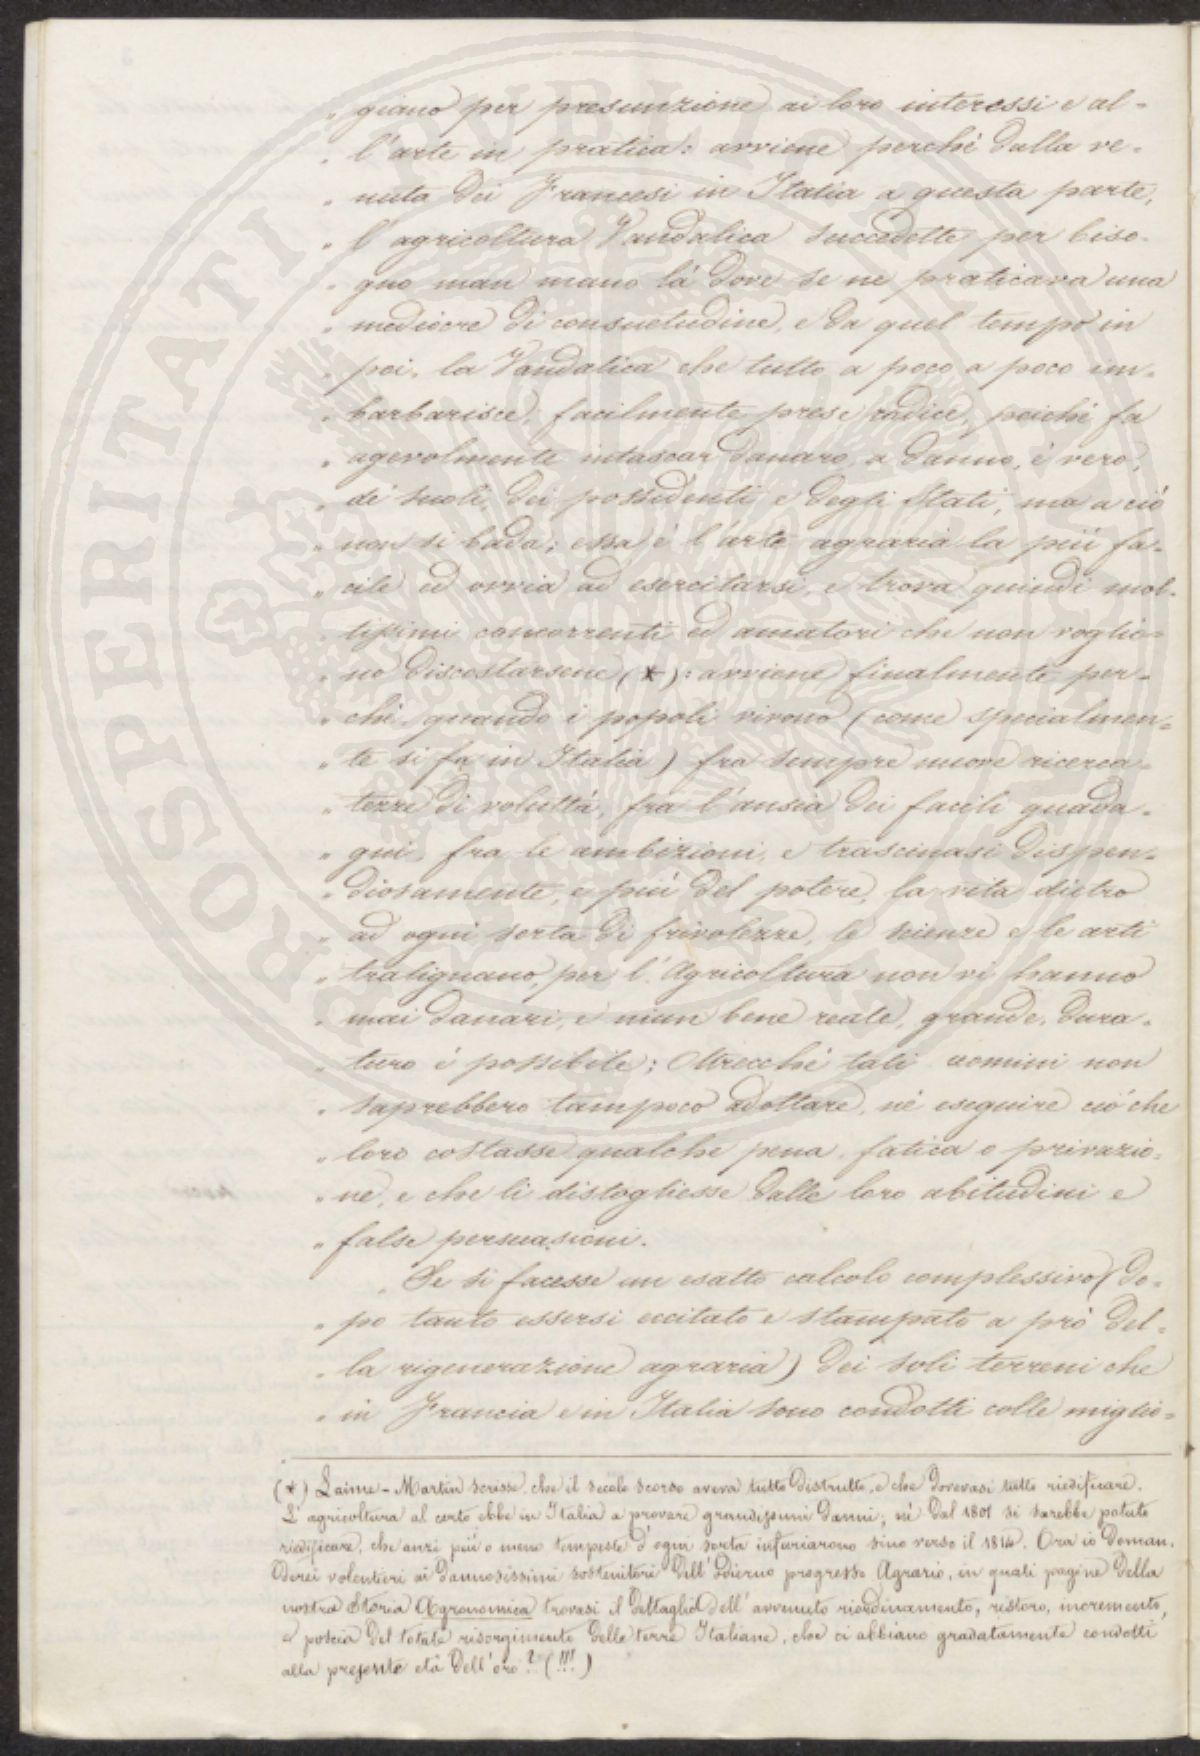 „ giano per presunzione ai loro interessi e al=
„ l'arte in pratica: avviene perchè dalla ve=
„ nuta dei Francesi in Italia a questa parte,
„ l'agricoltura Vandalica succedette per biso=
„ gno man mano là dove se ne praticava una
„ mediocre di consuetudine, e da quel tempo in
„ poi, la Vandalica che tutto a poco a poco im=
„ barbarisce, facilmente prese radice, poichè fa
„ agevolmente intascar danaro, a danno, è vero,
„ de' suoli, dei possidenti e degli Stati, ma a ciò
„ non si bada; essa è l'arte agraria la più fa=
„ cile ed ovvia ad esercitarsi, e trova quindi mol=
„ tissimi concorrenti ed amatori che non voglio=
„ no discostarsene (*): avviene finalmente per=
„ chè quando i popoli vivono (come specialmen=
„ te si fa in Italia) fra sempre nuove ricerca=
„ tezze di voluttà, fra l'ansia dei facili guada=
„ gni, fra le ambizioni, e trascinasi dispen=
„ diosamente, e più del potere, la vita dietro
„ ad ogni sorta di frivolezze, le scienze e le arti
„ tralignano, per l'Agricoltura non vi hanno
„ mai danari, e niun bene reale, grande, dura=
„ turo è possibile; Oltrecchè tali uomini non
„ saprebbero tampoco adottare, nè eseguire ciò che
„ loro costasse qualche pena, fatica o privazio=
„ ne, e che li distogliesse dalle loro abitudini e
„ false persuasioni.
„ Se si facesse un esatto calcolo complessivo (do=
„ po tanto essersi eccitato e stampato a prò del=
„ la rigenerazione agraria) dei soli terreni che
„ in Francia e in Italia sono condotti colle miglio=
(*) Laime-Martin scrisse, che il secolo scorso aveva tutto distrutto, e che dovevasi tutto riedificare.
L'agricoltura al certo ebbe in Italia a provare grandissimi danni; nè dal 1801 si sarebbe potuto
riedificare, che anzi più o meno tempeste d'ogni sorta infuriarono sino verso il 1814. Ora io doman=
derei volentieri ai dannosissimi sostenitori dell'odierno progresso Agrario, in quali pagine della
nostra Storia Agronomica trovasi il dettaglio dell'avvenuto riordinamento, restoro, incremento,
e poscia del totale risorgimento delle terre Italiane, che ci abbiano gradatamente condotti
alla presente età dell'oro? (!!!)
PROSPERITATI PUBLICAE